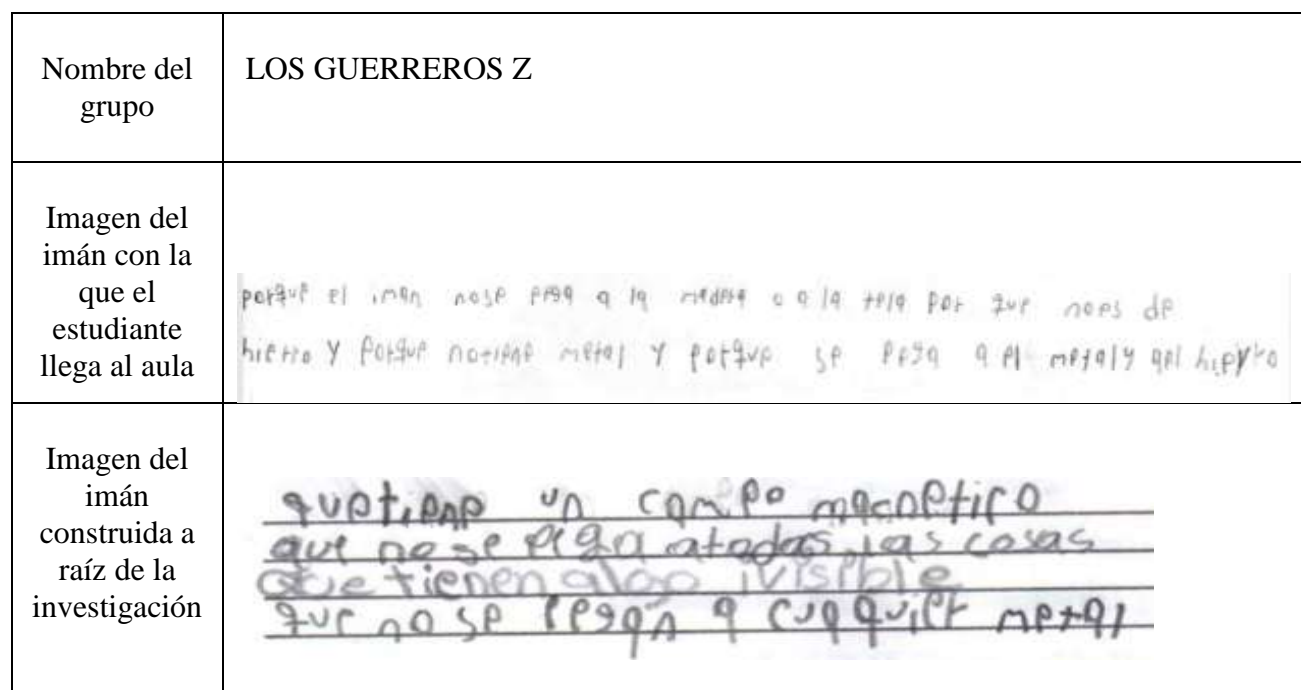 Nombre del
grupo
LOS GUERREROS Z
Imagen del
imán con la
que el
estudiante
llega al aula
porque el iman nose pega a la madera o a la tela por que noes de
hierro y porque notiene metal y porque se pega a el metal y ael hierro
Imagen del
imán
construida a
raíz de la
investigación
quetiene un campo macnetico
que no se pega atodas las cosas
que tienen algo ivisible
que no se pegan a cuaquier metal